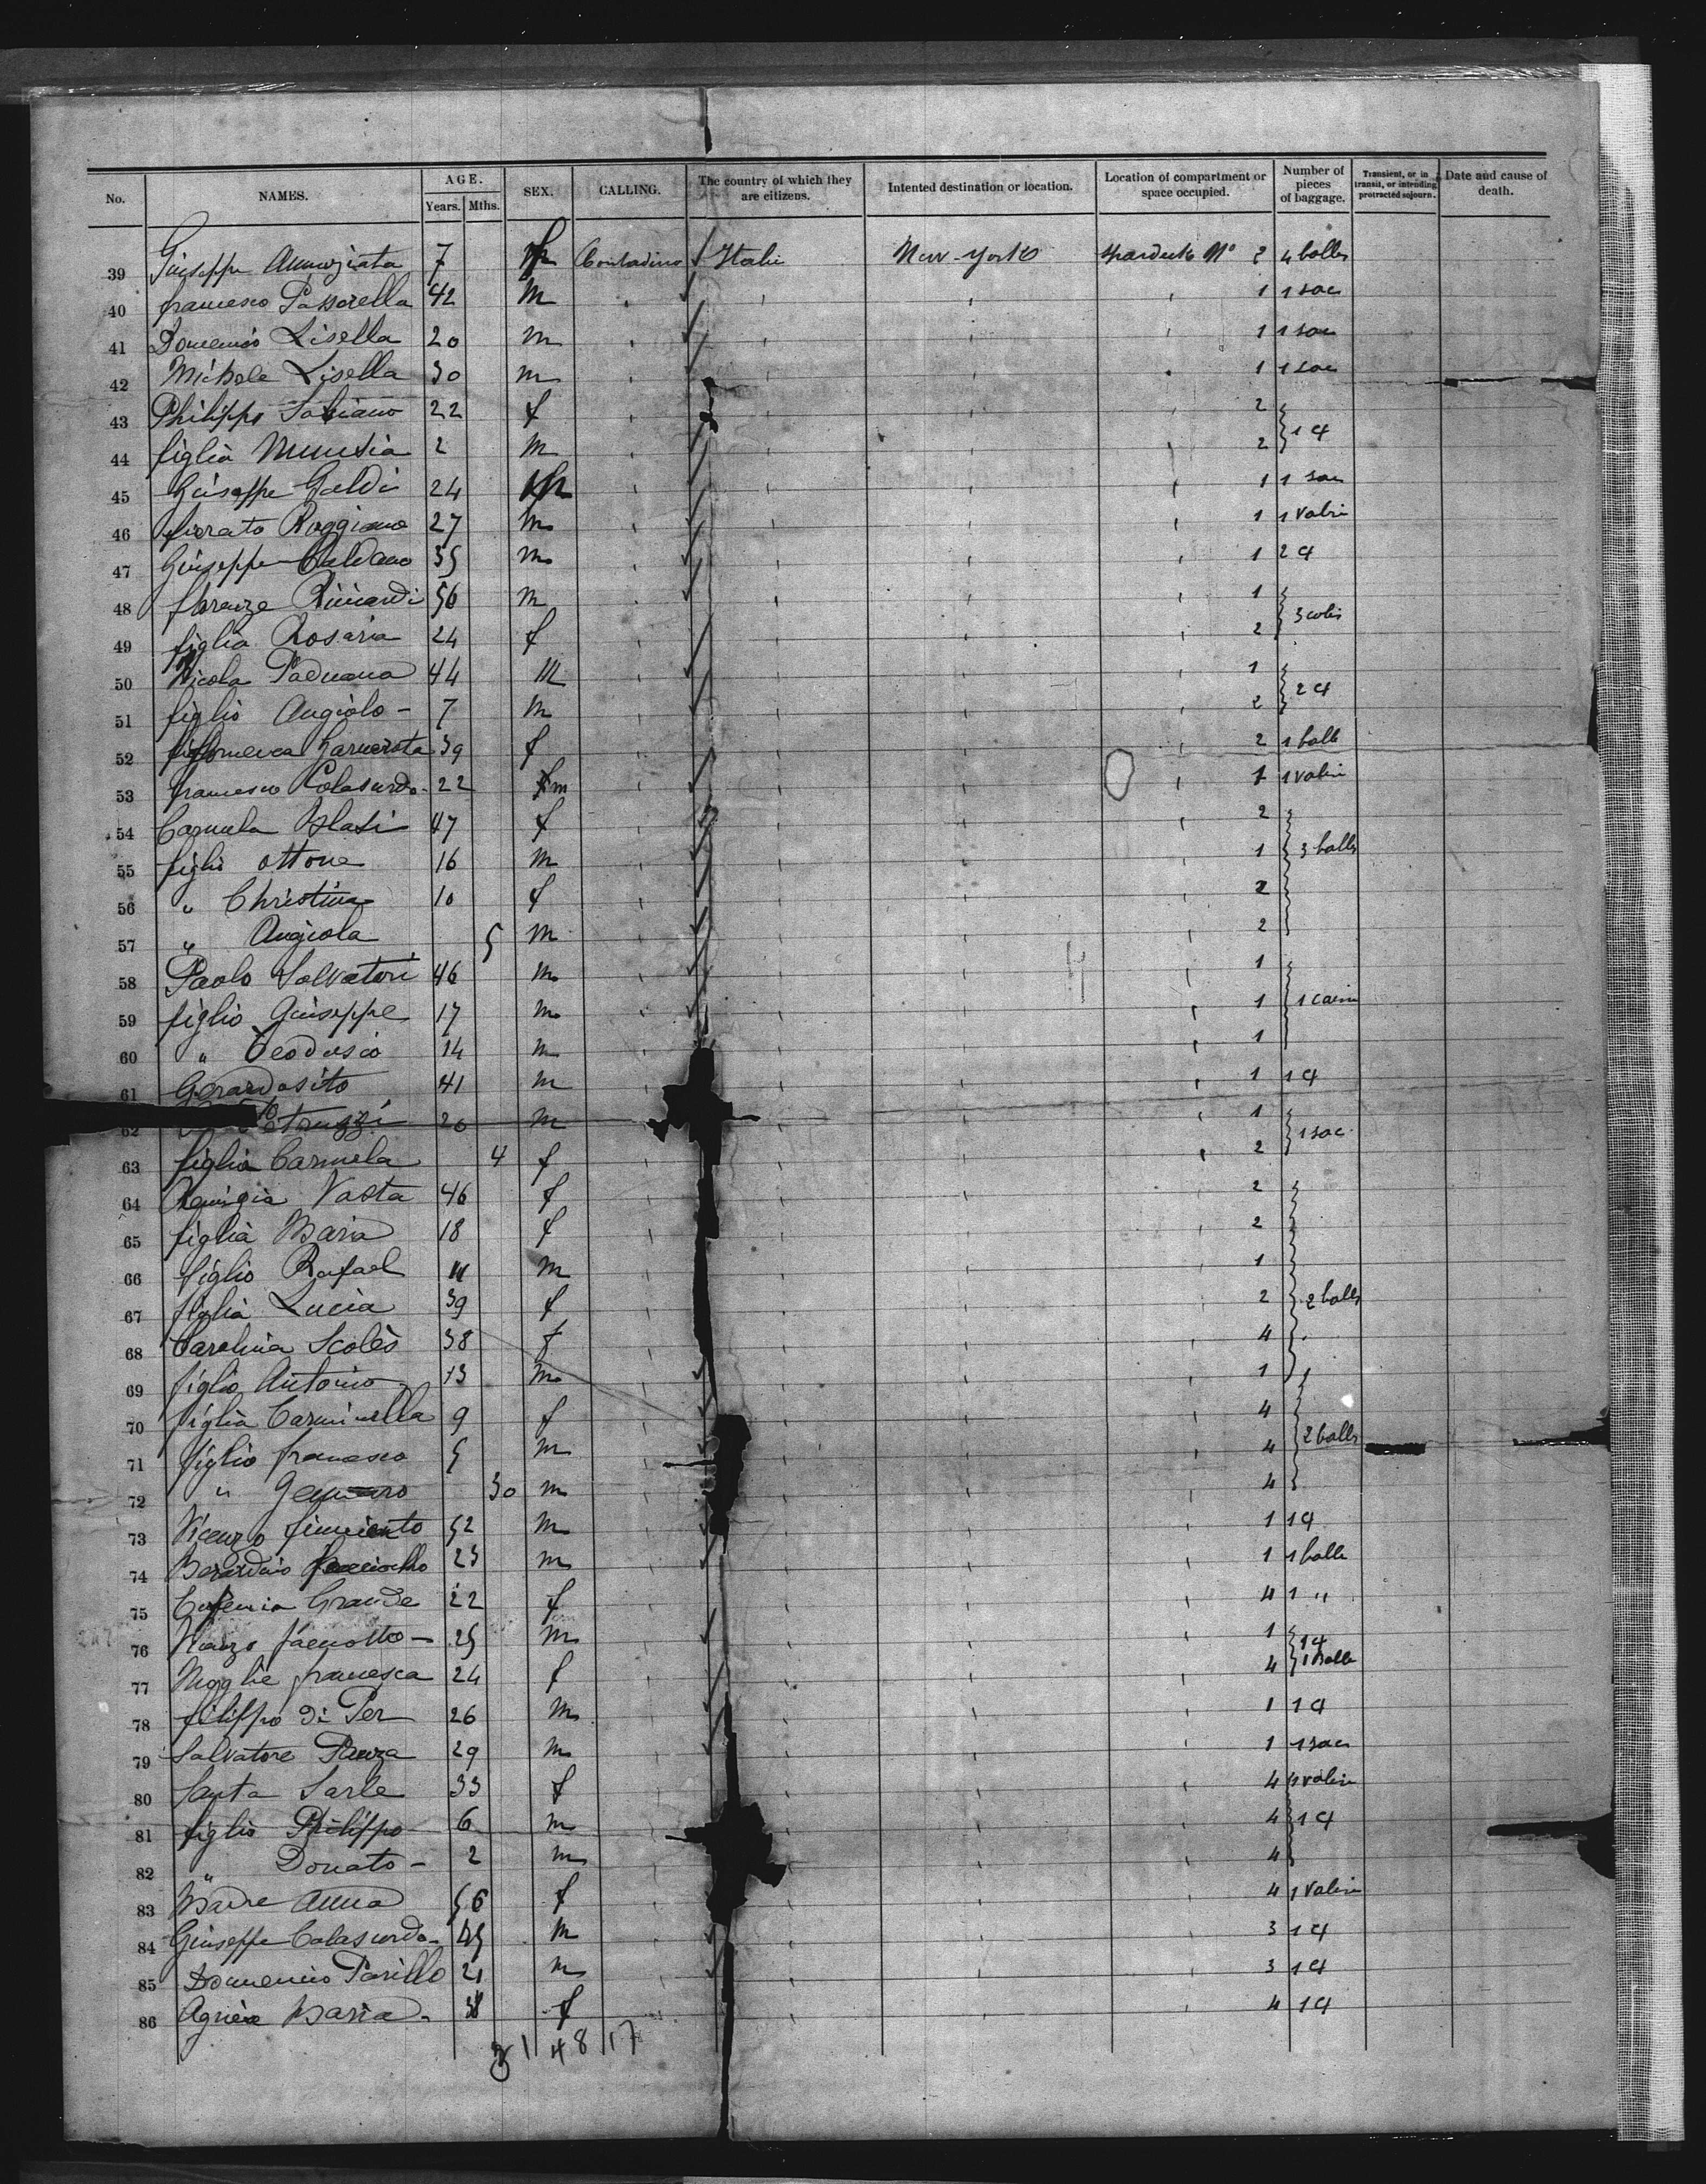 No. NAMES. AGE. Years. Mths. SEX. CALLING. The country of which they are citizens. Intented destination or location. Location of compartment or space occupied. Number of pieces of baggage. Transient, or in transit, or intending protracted sojourn. Date and cause of death.
39 Giuseppe Annunziata 7 Contadino Italie New-York N° 2 4 balles
40 francesco Passarella 42 m 1 1 sac
41 Domenico Lisella 20 m 1 1 sac
42 Michele Lisella 30 m 1 1 sac
43 Philippo 22 f 2
44 figlia 2 m 2 1 cf
45 Giuseppe Galdi 24 m 1 1 sac
46 Ruggiano 27 m 1 1 valise
47 Giuseppe 35 m 1 2 cf
48 56 m 1
49 figlia Rosaria 24 f 2 3 colis
50 Nicola Paduana 44 m 1
51 figlio Angiolo - 7 m 2 2 cf
52 39 f 2 1 balle
53 francesco Colasurdo - 22 m 1 1 valise
54 Carmela Blasi 47 f 2
55 figlio ottone 16 m 1 3 balles
56 " Christina 10 f 2
57 " Angiola 5 m 2
58 Paolo Salvatori 46 m 1
59 figlio Giuseppe 17 m 1 1 caisse
60 " Teodosio 14 m 1
61 Gerardo sito 41 m 1 1 cf
62 Petruzzi 20 m 1
63 figlia Carmela 4 f 2 1 sac
64 Remigia Vasta 46 f 2
65 figlia Maria 18 f 2
66 figlio Rafael m 1
67 figlia Lucia 39 f 2 2 balles
68 Carolina Scoles 38 f 4
69 figlio Antonio 13 m 1
70 figlia Carminella 9 f 4
71 figlio francesco 5 m 4 2 balles
72 " Gennaro 30 m 4
73 Vicenzo 52 m 1 1 cf
74 23 m 1 1 balle
75 Grande 22 f 4 1 "
76 25 m 1 1 cf
77 Moglie francesca 24 f 4 1 balle
78 filippo di Per 26 m 1 1 cf
79 Salvatore Panza 29 m 1 1 sac
80 Santa Sarle 33 f 4 1 valise
81 figlio Philippo 6 m 4 1 cf
82 " Donato - 2 m 4
83 Madre Anna 56 f 4 1 valise
84 Giuseppe Colasurdo - 45 m 3 1 cf
85 Domenico Parillo 21 m 3 1 cf
86 Maria - 38 f 4 1 cf
31 48 17